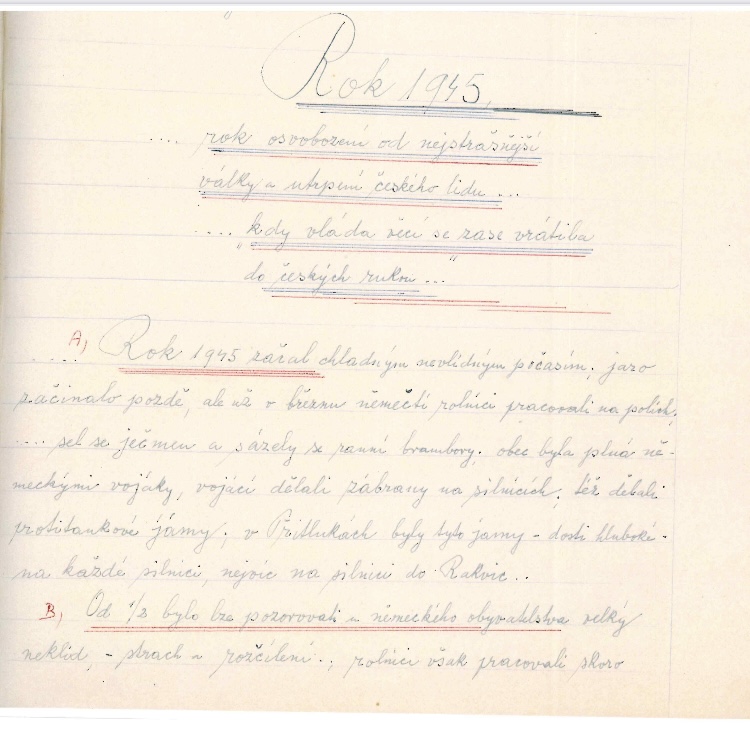 Rok 1945.
.... rok osvobození od nejstrašnější
války a utrpení českého lidu ...
.... „kdy vláda věcí se zase vrátila
do českých rukou“ ...
A) ..... Rok 1945 začal chladným nevlídným počasím; jaro
začínalo pozdě, ale už v březnu němečtí rolníci pracovali na polích;
.... sel se ječmen a sázely se ranní brambory. obec byla plná ně-
meckými vojáky, vojáci dělali zábrany na silnicích; též dělali
protitankové jámy; v Přítlukách byly tyto jámy - dosti hluboké -
na každé silnici, nejvíc na silnici do Rakvic..
B) Od 1/2 bylo lze pozorovati u německého obyvatelstva velký
neklid, - strach a rozčílení.; rolníci však pracovali skoro